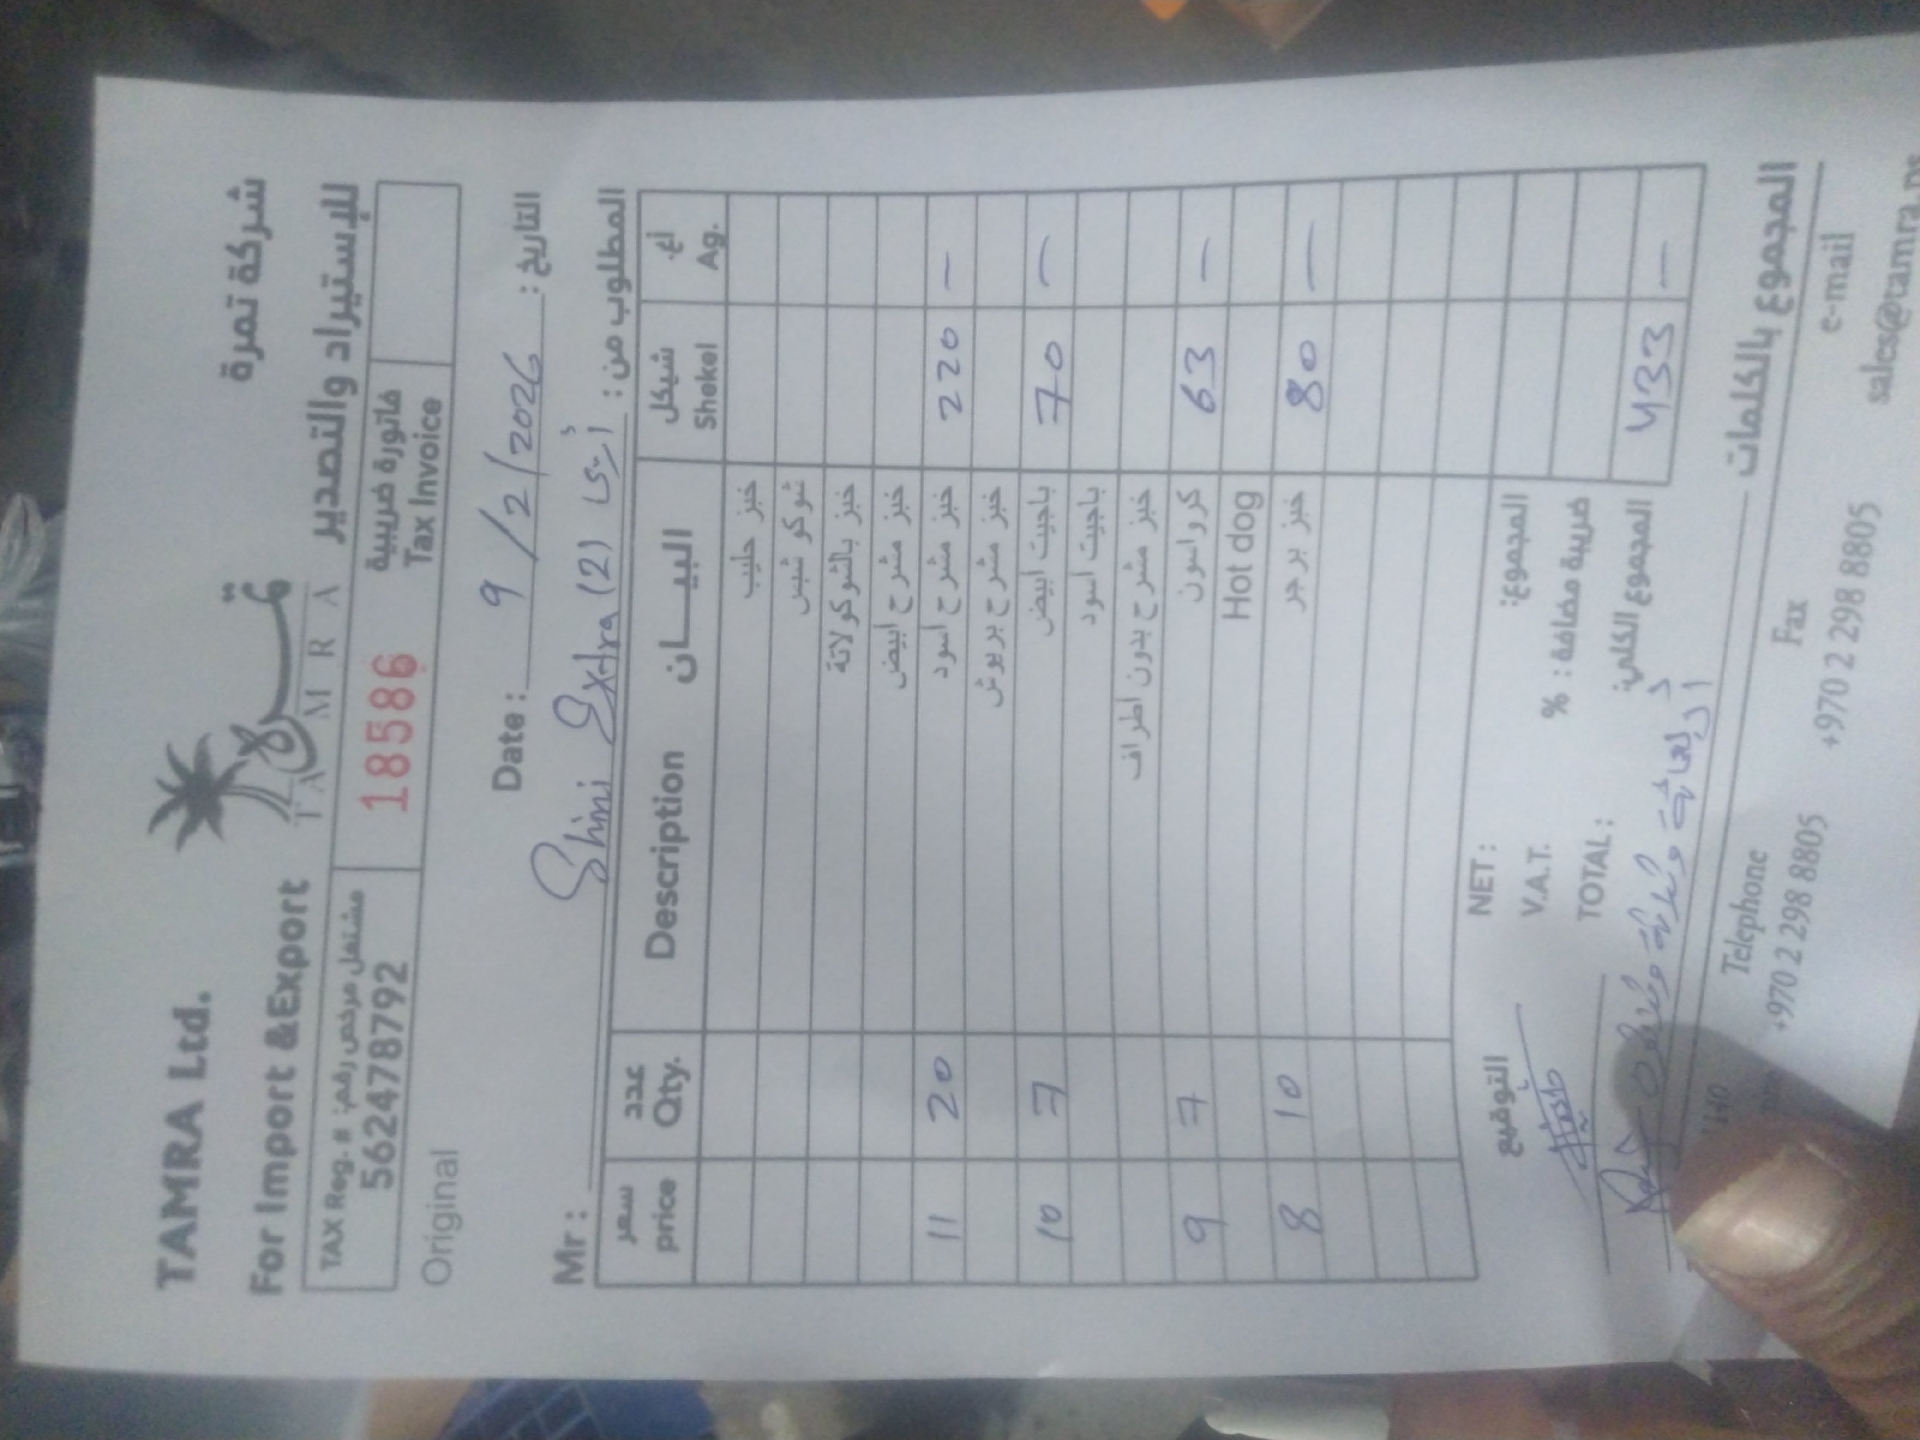 TAMRA Ltd. شركة تمرة
For Import &Export للإستيراد والتصدير
تمرة
TAMRA
TAX Reg. # مشتغل مرخص رقم:
562478792
18586
فاتورة ضريبية
Tax Invoice
Original
Date : 9/2/2026 التاريخ :
Mr : Shini Extra (2) المطلوب من :
سعر price عدد Qty. Description البيـــان شيكل Shekel أغ. Ag.
خبز حليب
شوكو شبس
خبز بالشوكولاتة
خبز مشرح ابيض
11 20 خبز مشرح اسود 220 —
خبز مشرح بريوش
10 7 باجيت ابيض 70 —
باجيت اسود
خبز مشرح بدون اطراف
9 7 كرواسون 63 —
Hot dog
8 10 خبز برجر 80 —
التوقيع NET : المجموع:
V.A.T. % : ضريبة مضافة
TOTAL : المجموع الكلي: 433 —
أربعمائة وثلاثة وثلاثون
المجموع بالكلمات
Telephone Fax e-mail
+970 2 298 8805 +970 2 298 8805 sales@tamra.ps